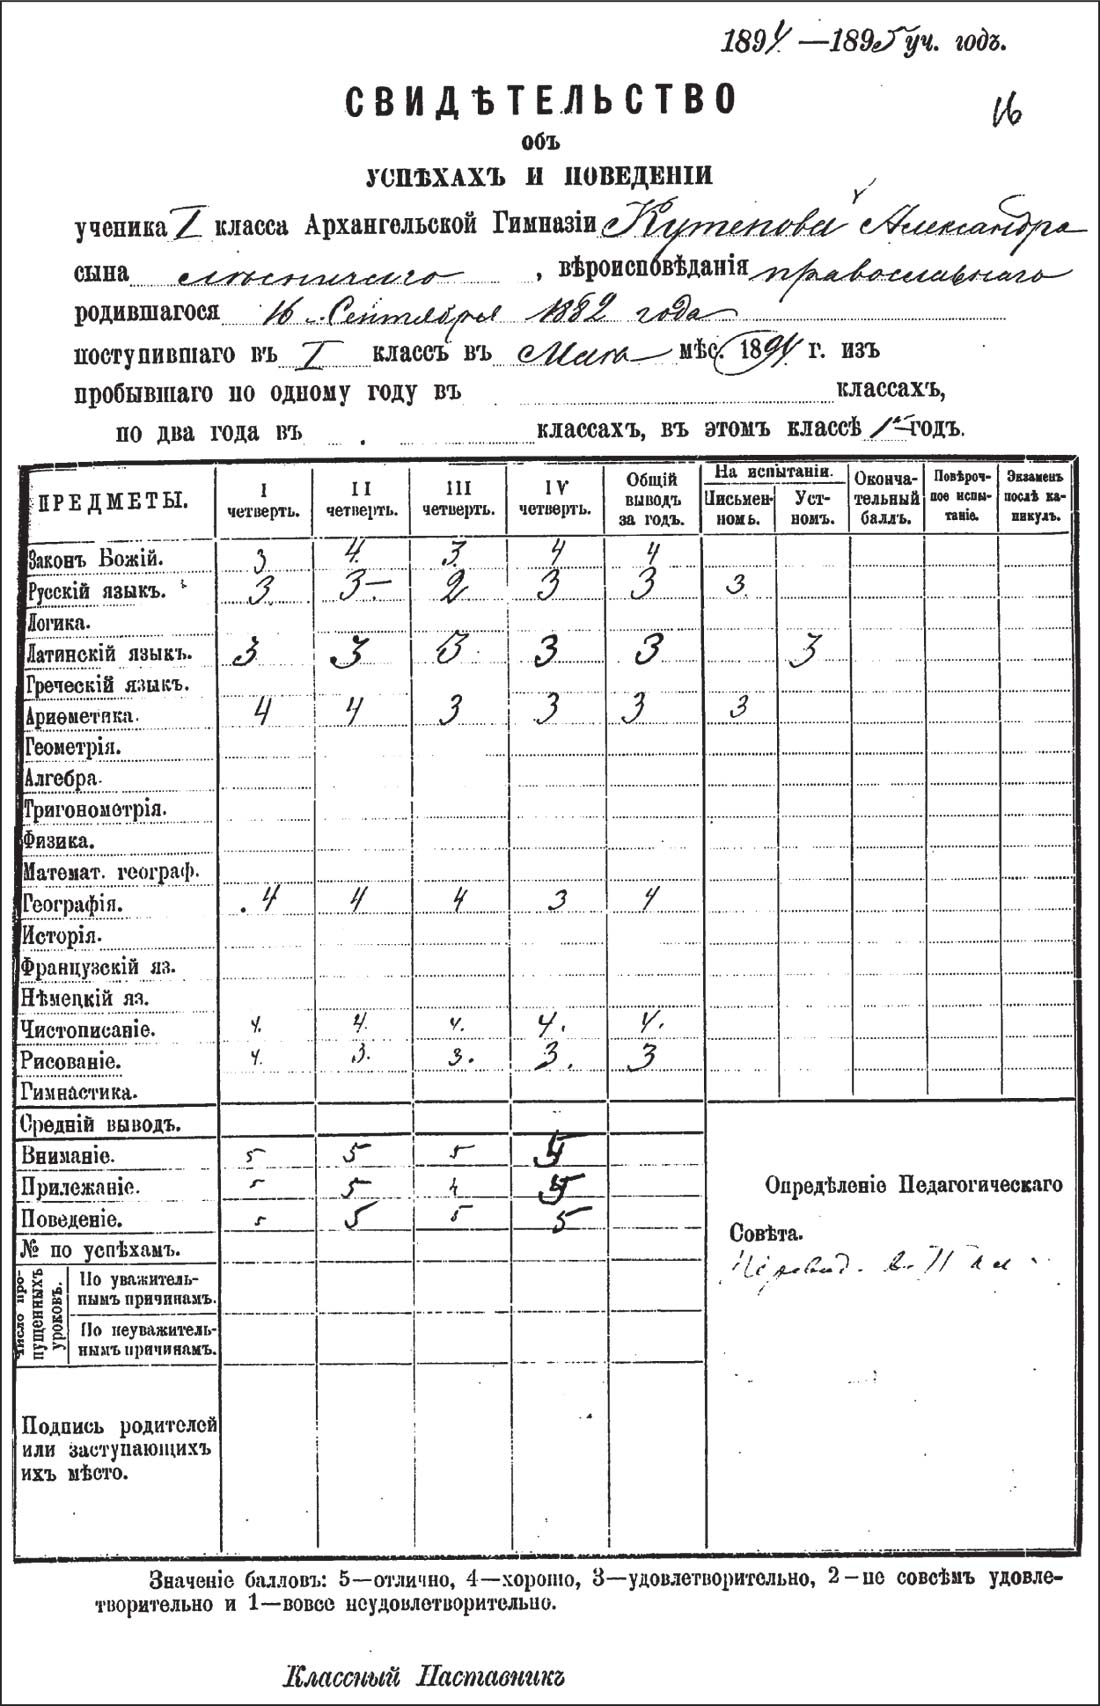 1894—1895 уч. годъ.
16
СВИДѢТЕЛЬСТВО
объ
УСПѢХАХЪ И ПОВЕДЕНІИ
ученика I класса Архангельской Гимназіи Кутепова Александра
сына лѣсничаго, вѣроисповѣданія православнаго
родившагося 16 Сентября 1882 года
поступившаго въ I классъ въ Маѣ мѣс. 1894 г. изъ
пробывшаго по одному году въ классахъ,
по два года въ классахъ, въ этомъ классѣ 1й годъ.
ПРЕДМЕТЫ. I четверть. II четверть. III четверть. IV четверть. Общій выводъ за годъ. На испытаніи. Письменномъ. Устномъ. Окончательный баллъ. Повѣрочное испытаніе. Экзаменъ послѣ каникулъ.
Законъ Божій. 3 4 3 4 4
Русскій языкъ. 3 3— 2 3 3 3
Логика.
Латинскій языкъ. 3 3 3 3 3 3
Греческій языкъ.
Ариѳметика. 4 4 3 3 3 3
Геометрія.
Алгебра.
Тригонометрія.
Физика.
Математ. географ.
Географія. 4 4 4 3 4
Исторія.
Французскій яз.
Нѣмецкій яз.
Чистописаніе. 4. 4. 4. 4. 4.
Рисованіе. 4. 3. 3. 3. 3
Гимнастика.
Средній выводъ.
Вниманіе. 5 5 5 5
Прилежаніе. 5 5 4 5
Поведеніе. 5 5 5 5
№ по успѣхамъ.
Число пропущенныхъ уроковъ.
По уважительнымъ причинамъ.
По неуважительнымъ причинамъ.
Подпись родителей
или заступающихъ
ихъ мѣсто.
Опредѣленіе Педагогическаго
Совѣта.
Перевед. в II кл
Значеніе балловъ: 5—отлично, 4—хорошо, 3—удовлетворительно, 2—не совсѣмъ удовле-
творительно и 1—вовсе неудовлетворительно.
Классный Наставникъ